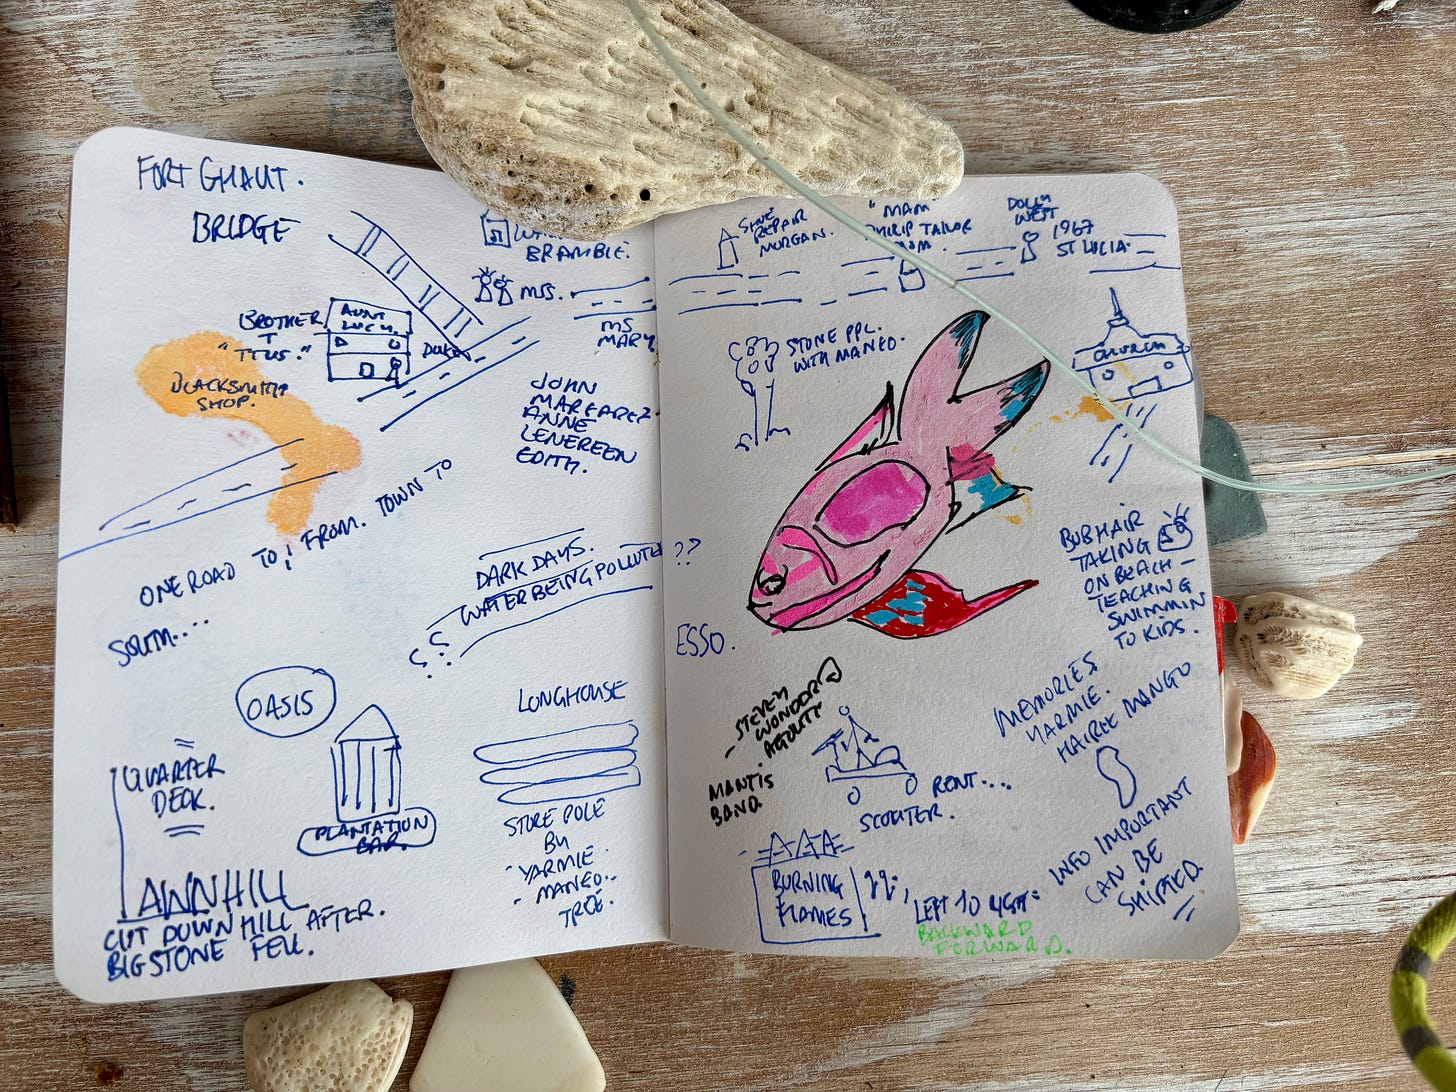 FORT GHAUT.
BRIDGE
BRAMBLE.
MRS.
MS
MARY.
BROTHER
"TITUS."
AUNT
LUCY.
BLACKSMITH
SHOP.
JOHN
MARGARET
ANNE
LENEREEN
EDITH.
ONE ROAD TO ; FROM. TOWN TO
SOUTH....
DARK DAYS.
WATER BEING POLLUTED
??
??
OASIS
QUARTER
DECK.
PLANTATION
BAR.
LONGHOUSE
STORE POLE
BY
YARMIE.
- MANGO..
- TREE.
LAWNHILL
CUT DOWN HILL AFTER.
BIG STONE FELL.
SHOE
REPAIR
MORGAN.
"MAM
PHILIP TAILOR
DOLLY
WEST
1967
ST LUCIA.
STONE PPL.
WITH MANGO.
CHURCH
BUBHAIR
TAKING
ON BEACH -
TEACHING
SWIMMIN
TO KIDS.
ESSO.
- STEVEY
WONDER
AGOUTI
MANTIS
BAND.
RENT...
SCOUTER.
MEMORIES
YARMIE.
HAIREE MANGO
INFO IMPORTANT
CAN BE
SHIPTED.
BURNING
FLAMES
LEFT TO RIGHT:
BACKWARD
FORWARD.